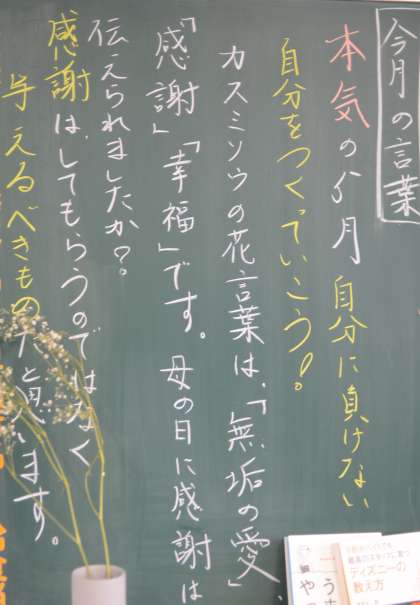 今月の言葉
本気の5月 自分に負けない
自分をつくっていこう!
カスミソウの花言葉は、「無垢の愛」、
「感謝」「幸福」です。母の日に感謝は
伝えられましたか?
感謝は、してもらうのではなく
与えるべきものだと思います。
ディズニーの
教え方